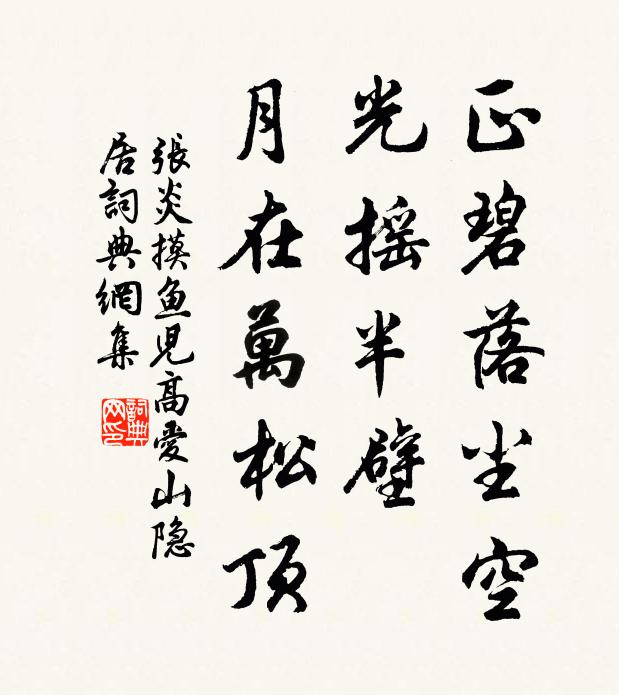 正碧落尘空
光摇半壁
月在萬松顶
張炎摸鱼児高愛山隐
居詞典網集
詞典
网印